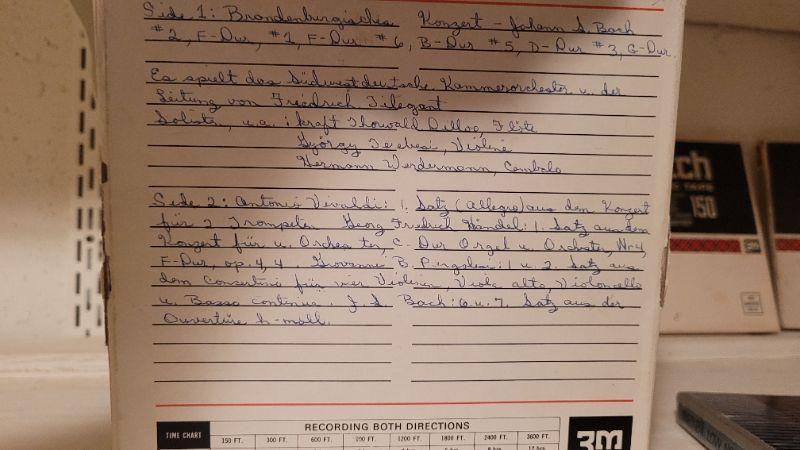 Side 1: Brandenburgisches Konzert - Johann S. Bach
#2, F-Dur, #1, F-Dur #6, B-Dur #5, D-Dur #3, G-Dur.
Es spielt das Südwestdeutsche Kammerorchester u. der
Leitung von Friedrich Tilegant
Solisten, u.a.: Kraft Thorwald Dilloo, Flöte
György Terebesi, Violine
Hermann Werdermann, Cembalo
Side 2: Antonio Vivaldi: 1. Satz (Allegro) aus dem Konzert
für 2 Trompeten Georg Friedrich Händel: 1. Satz aus dem
Konzert für u. Orchester, C-Dur Orgel u. Orchester, Nr 4,
F-Dur, op. 4, 4. Giovanni B. Pergolesi: 1 u. 2. Satz aus
dem Concertino für vier Violinen, Viola alto, Violoncello
u. Basso continuo. J. S. Bach: 6 u. 7. Satz aus der
Ouvertüre h-moll.
TIME CHART
RECORDING BOTH DIRECTIONS
150 FT. 300 FT. 600 FT. 1200 FT. 1800 FT. 2400 FT. 3600 FT.
3M
150